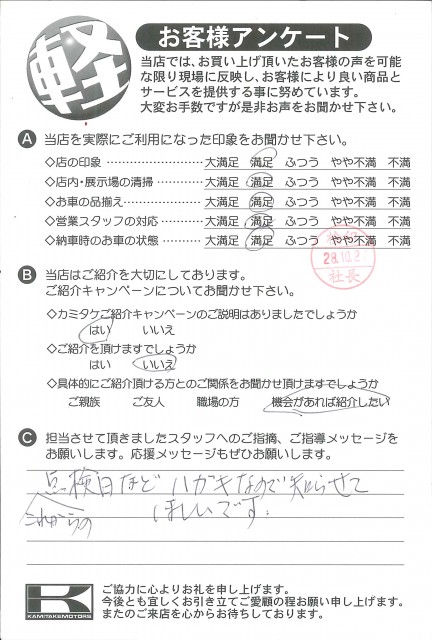 軽
お客様アンケート
当店では、お買い上げ頂いたお客様の声を可能
な限り現場に反映し、お客様により良い商品と
サービスを提供する事に努めています。
大変お手数ですが是非お声をお聞かせ下さい。
A 当店を実際にご利用になった印象をお聞かせ下さい。
◇店の印象 ……………………… 大満足 満足 ふつう やや不満 不満
◇店内・展示場の清掃 ………… 大満足 満足 ふつう やや不満 不満
◇お車の品揃え………………… 大満足 満足 ふつう やや不満 不満
◇営業スタッフの対応 ………… 大満足 満足 ふつう やや不満 不満
◇納車時のお車の状態 ………… 大満足 満足 ふつう やや不満 不満
28.10.2
社長
B 当店はご紹介を大切にしております。
ご紹介キャンペーンについてお聞かせ下さい。
◇カミタケご紹介キャンペーンのご説明はありましたでしょうか
はい いいえ
◇ご紹介を頂けますでしょうか
はい いいえ
◇具体的にご紹介頂ける方とのご関係をお聞かせ頂けますでしょうか
ご親族 ご友人 職場の方 機会があれば紹介したい
C 担当させて頂きましたスタッフへのご指摘、ご指導メッセージを
お願いします。応援メッセージもぜひお願いします。
点検日など ハガキなので知らせて
これからの ほしいです.
K
KAMITAKEMOTORS
ご協力に心よりお礼を申し上げます。
今後とも宜しくお引き立てご愛顧の程お願い申し上げます。
またのご来店を心からお待ちしております。